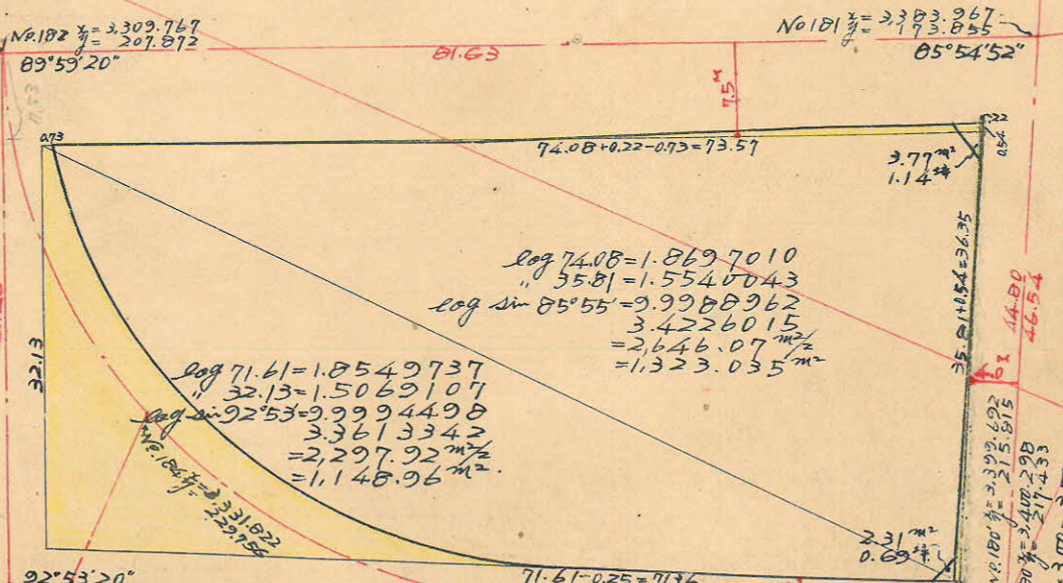 No.182 x = 3,309.767
y = 207.872
89°59'20"
81.63
No 181 x = 3,383.967
y = 173.855
85°54'52"
7.5M
0.73
74.08+0.22-0.73=73.57
0.22
0.54
3.77m²
1.14坪
log 74.08=1.8697010
〃 35.81=1.5540043
log sin 85°55'=9.9988962
3.4226015
=2,646.07 m²/2
=1,323.035 m²
35.81+0.54=36.35
44.80
46.54
32.13
log 71.61=1.8549737
〃 32.13=1.5069107
log sin 92°53'=9.9994498
3.3613342
=2,297.92 m²/2
=1,148.96 m².
No.184 x = 3,331.822
y = 229.756
2.31m²
0.69坪
No.180' x = 3,399.692
y = 215.815
x = 3,400.298
y = 217.433
92°53'20"
71.61-0.25=71.36